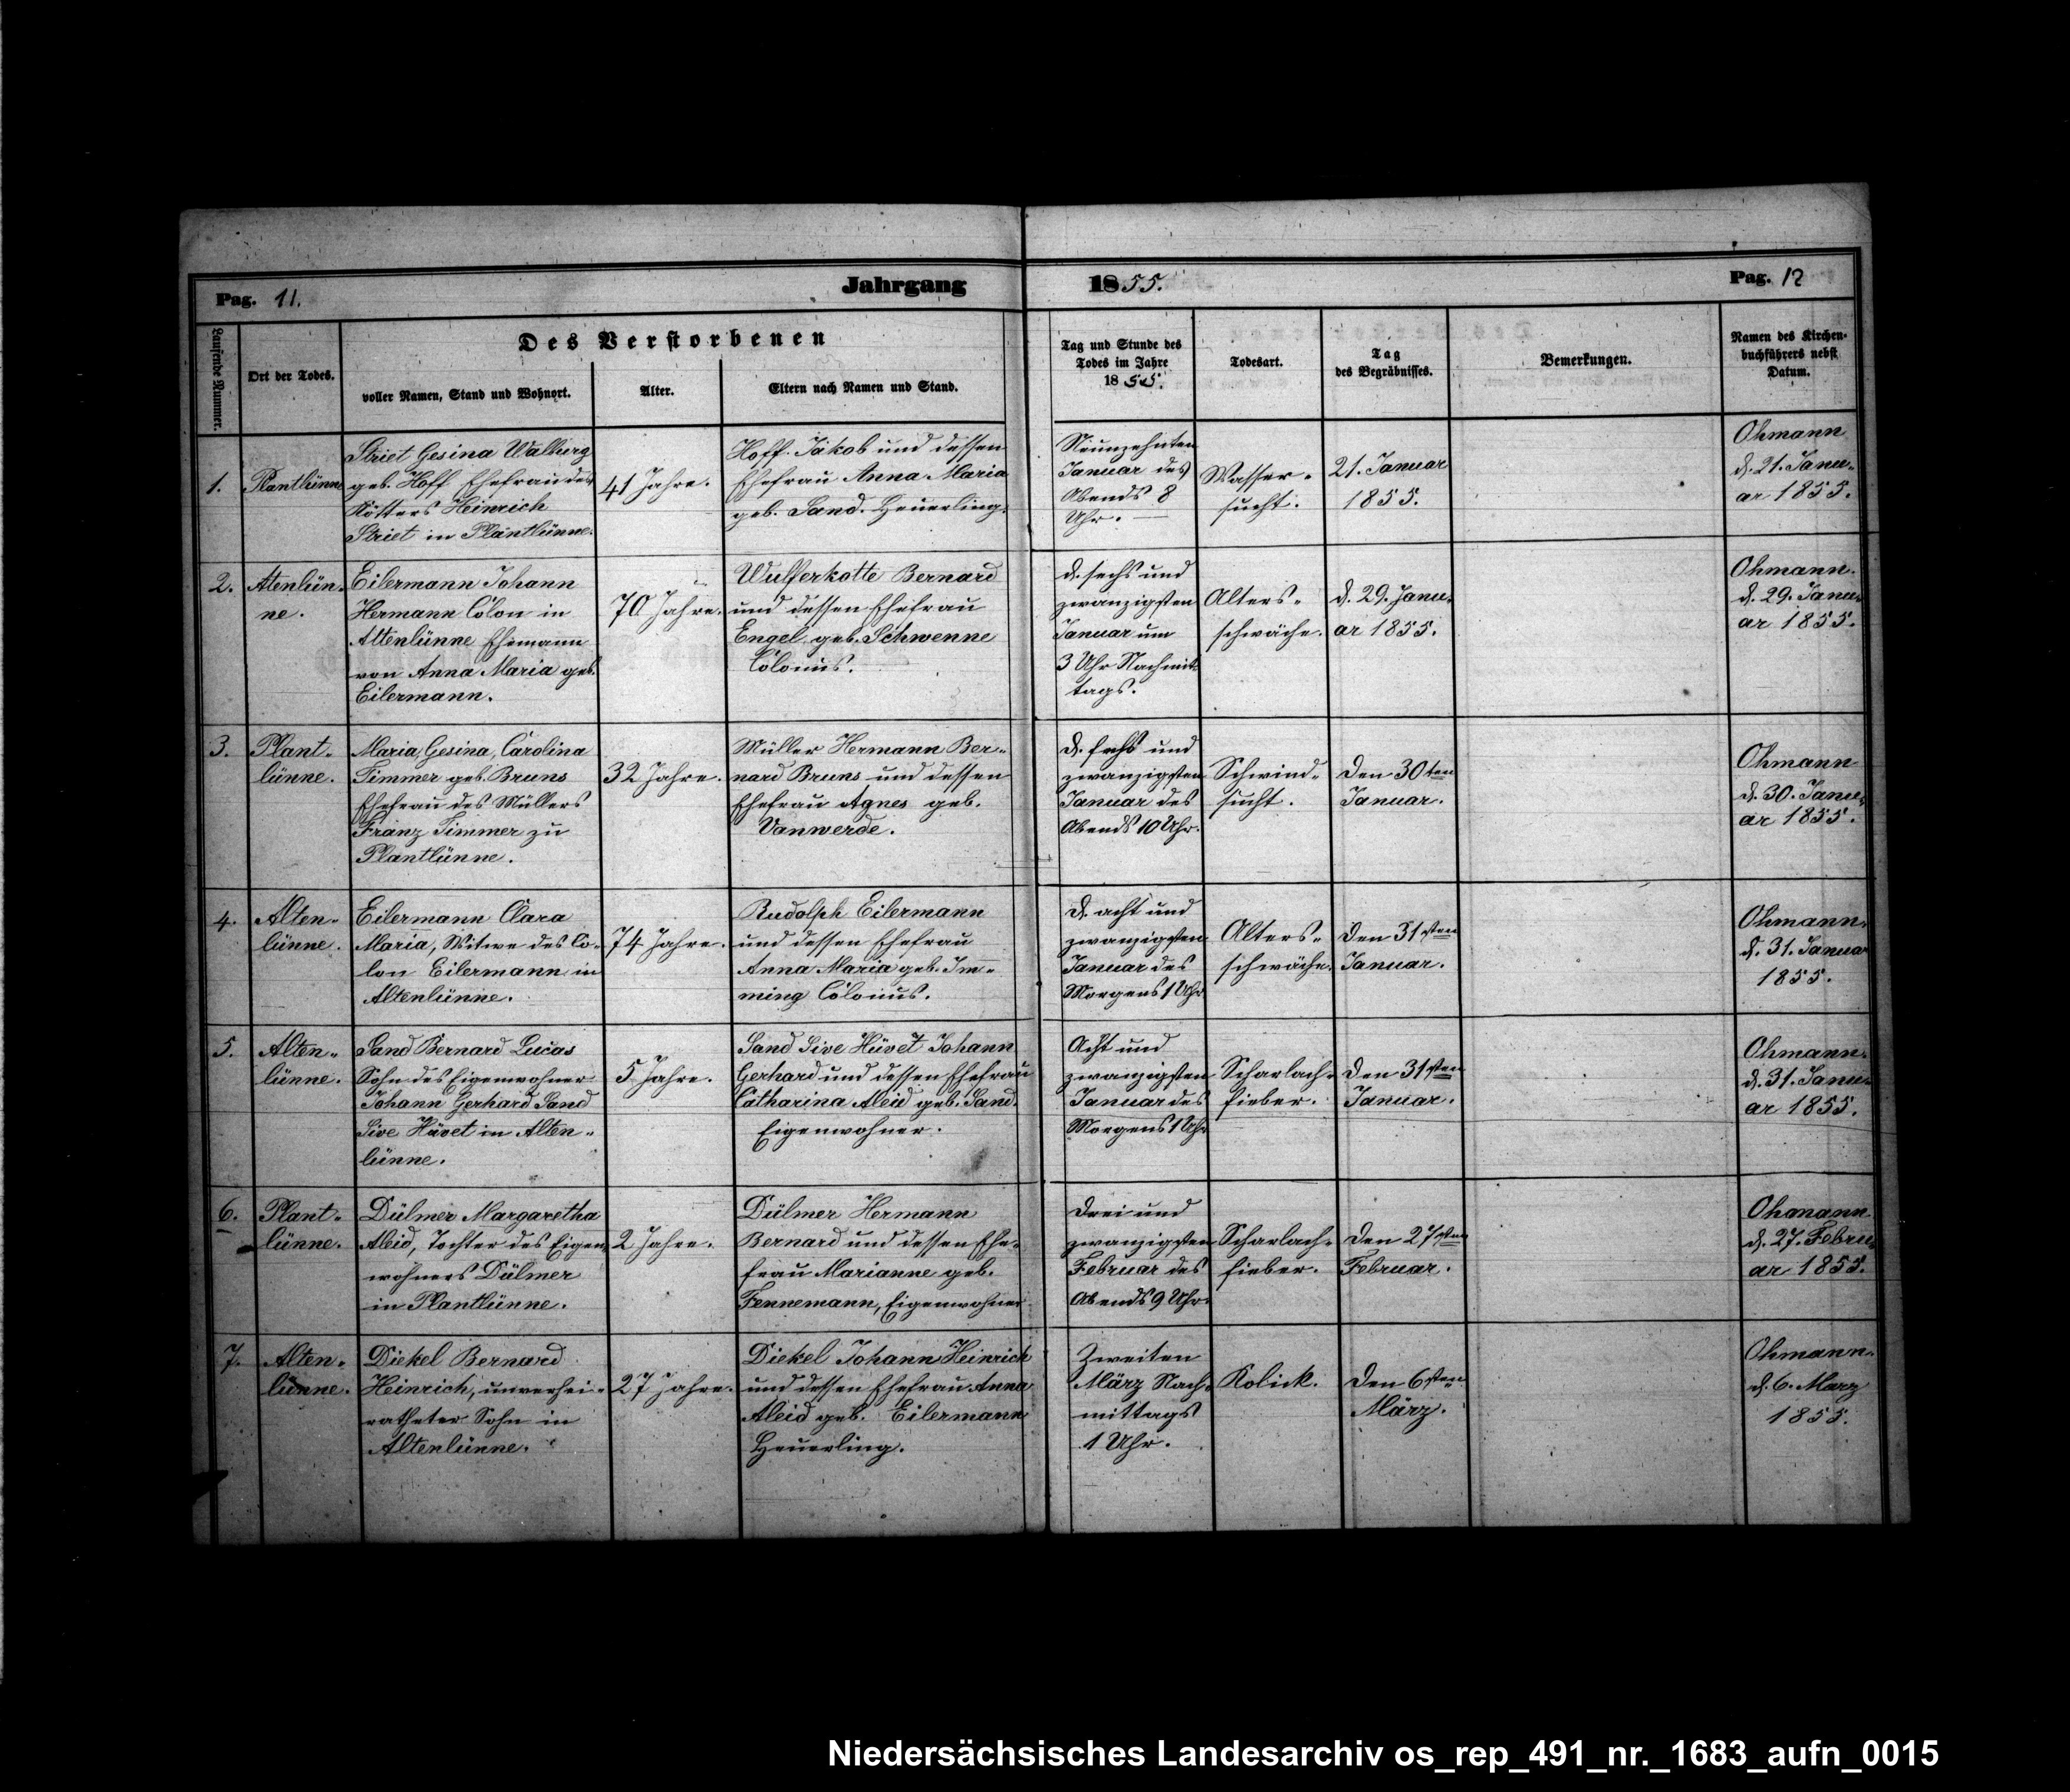 Pag. 11.
Jahrgang
1855.
Pag. 12
Laufende Nummer.
Ort der Todes.
Des Verstorbenen
voller Namen, Stand und Wohnort.
Alter.
Eltern nach Namen und Stand.
Tag und Stunde des
Todes im Jahre
1855.
Todesart.
Tag
des Begräbnisses.
Bemerkungen.
Namen des Kirchen-
buchführers nebst
Datum.
1.
Plantlünne
Striet Gesina Walburg
geb. Hoff Ehefrau des
Kötters Heinrich
Striet in Plantlünne.
41 Jahre.
Hoff Jakob und dessen
Ehefrau Anna Maria
geb. Sand. Heuerling.
Neunzehnten
Januar des
Abends 8
Uhr.
Wasser-
sucht.
21. Januar
1855.
Ohmann
d. 21. Janu-
ar 1855.
2.
Atenlün-
ne.
Eilermann Johann
Hermann Colon in
Altenlünne Ehemann
von Anna Maria geb.
Eilermann.
70 Jahre.
Wulferkotte Bernard
und dessen Ehefrau
Engel geb. Schwenne
Colonus.
d. sechs und
zwanzigsten
Januar um
3 Uhr Nachmit-
tags.
Alters-
schwäche.
d. 29. Janu-
ar 1855.
Ohmann.
d. 29. Janu-
ar 1855.
3.
Plant-
lünne.
Maria Gesina Carolina
Timmer geb. Bruns
Ehefrau des Müllers
Franz Timmer zu
Plantlünne.
32 Jahre.
Müller Hermann Ber-
nard Bruns und dessen
Ehefrau Agnes geb.
Vanwerde.
d. sechs und
zwanzigsten
Januar des
Abends 10 Uhr.
Schwind-
sucht.
Den 30ten
Januar.
Ohmann
d. 30. Janu-
ar 1855.
4.
Alten-
lünne.
Eilermann Clara
Maria, Witwe des Co-
lon Eilermann in
Altenlünne.
74 Jahre.
Rudolph Eilermann
und dessen Ehefrau
Anna Maria geb. Im-
ming Colonus.
d. acht und
zwanzigsten
Januar des
Morgens 1 Uhr
Alters-
schwäche.
Den 31sten
Januar.
Ohmann.
d. 31. Januar
1855.
5.
Alten-
lünne.
Sand Bernard Lucas
Sohn des Eigenwohner
Johann Gerhard Sand
Sive Hüvet in Alten-
lünne.
5 Jahre.
Sand Sive Hüvet Johann
Gerhard und dessen Ehefrau
Catharina Aleid geb. Sand.
Eigenwohner.
Acht und
zwanzigsten
Januar des
Morgens 1 Uhr
Scharlach-
fieber.
Den 31sten
Januar.
Ohmann.
d. 31. Janu-
ar 1855.
6.
Plant-
lünne.
Dülmer Margaretha
Aleid, Tochter des Eigen-
wohners Dülmer
in Plantlünne.
2 Jahre.
Dülmer Hermann
Bernard und dessen Ehe-
frau Marianne geb.
Fennemann, Eigenwohner
Drei und
zwanzigsten
Februar des
Abends 9 Uhr.
Scharlach-
fieber.
Den 27sten
Februar.
Ohmann
d. 27. Febru-
ar 1855.
7.
Alten-
lünne.
Diekel Bernard
Heinrich, unverhei-
ratheter Sohn in
Altenlünne.
27 Jahre.
Diekel Johann Heinrich
und dessen Ehefrau Anna
Aleid geb. Eilermann
Heuerling.
Zweiten
März Nach-
mittags
1 Uhr.
Kolick.
Den 6sten
März.
Ohmann.
d. 6. März
1855.
Niedersächsisches Landesarchiv os_rep_491_nr._1683_aufn_0015